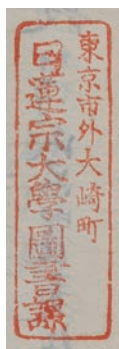 東京市外大崎町
日蓮宗大學圖書課